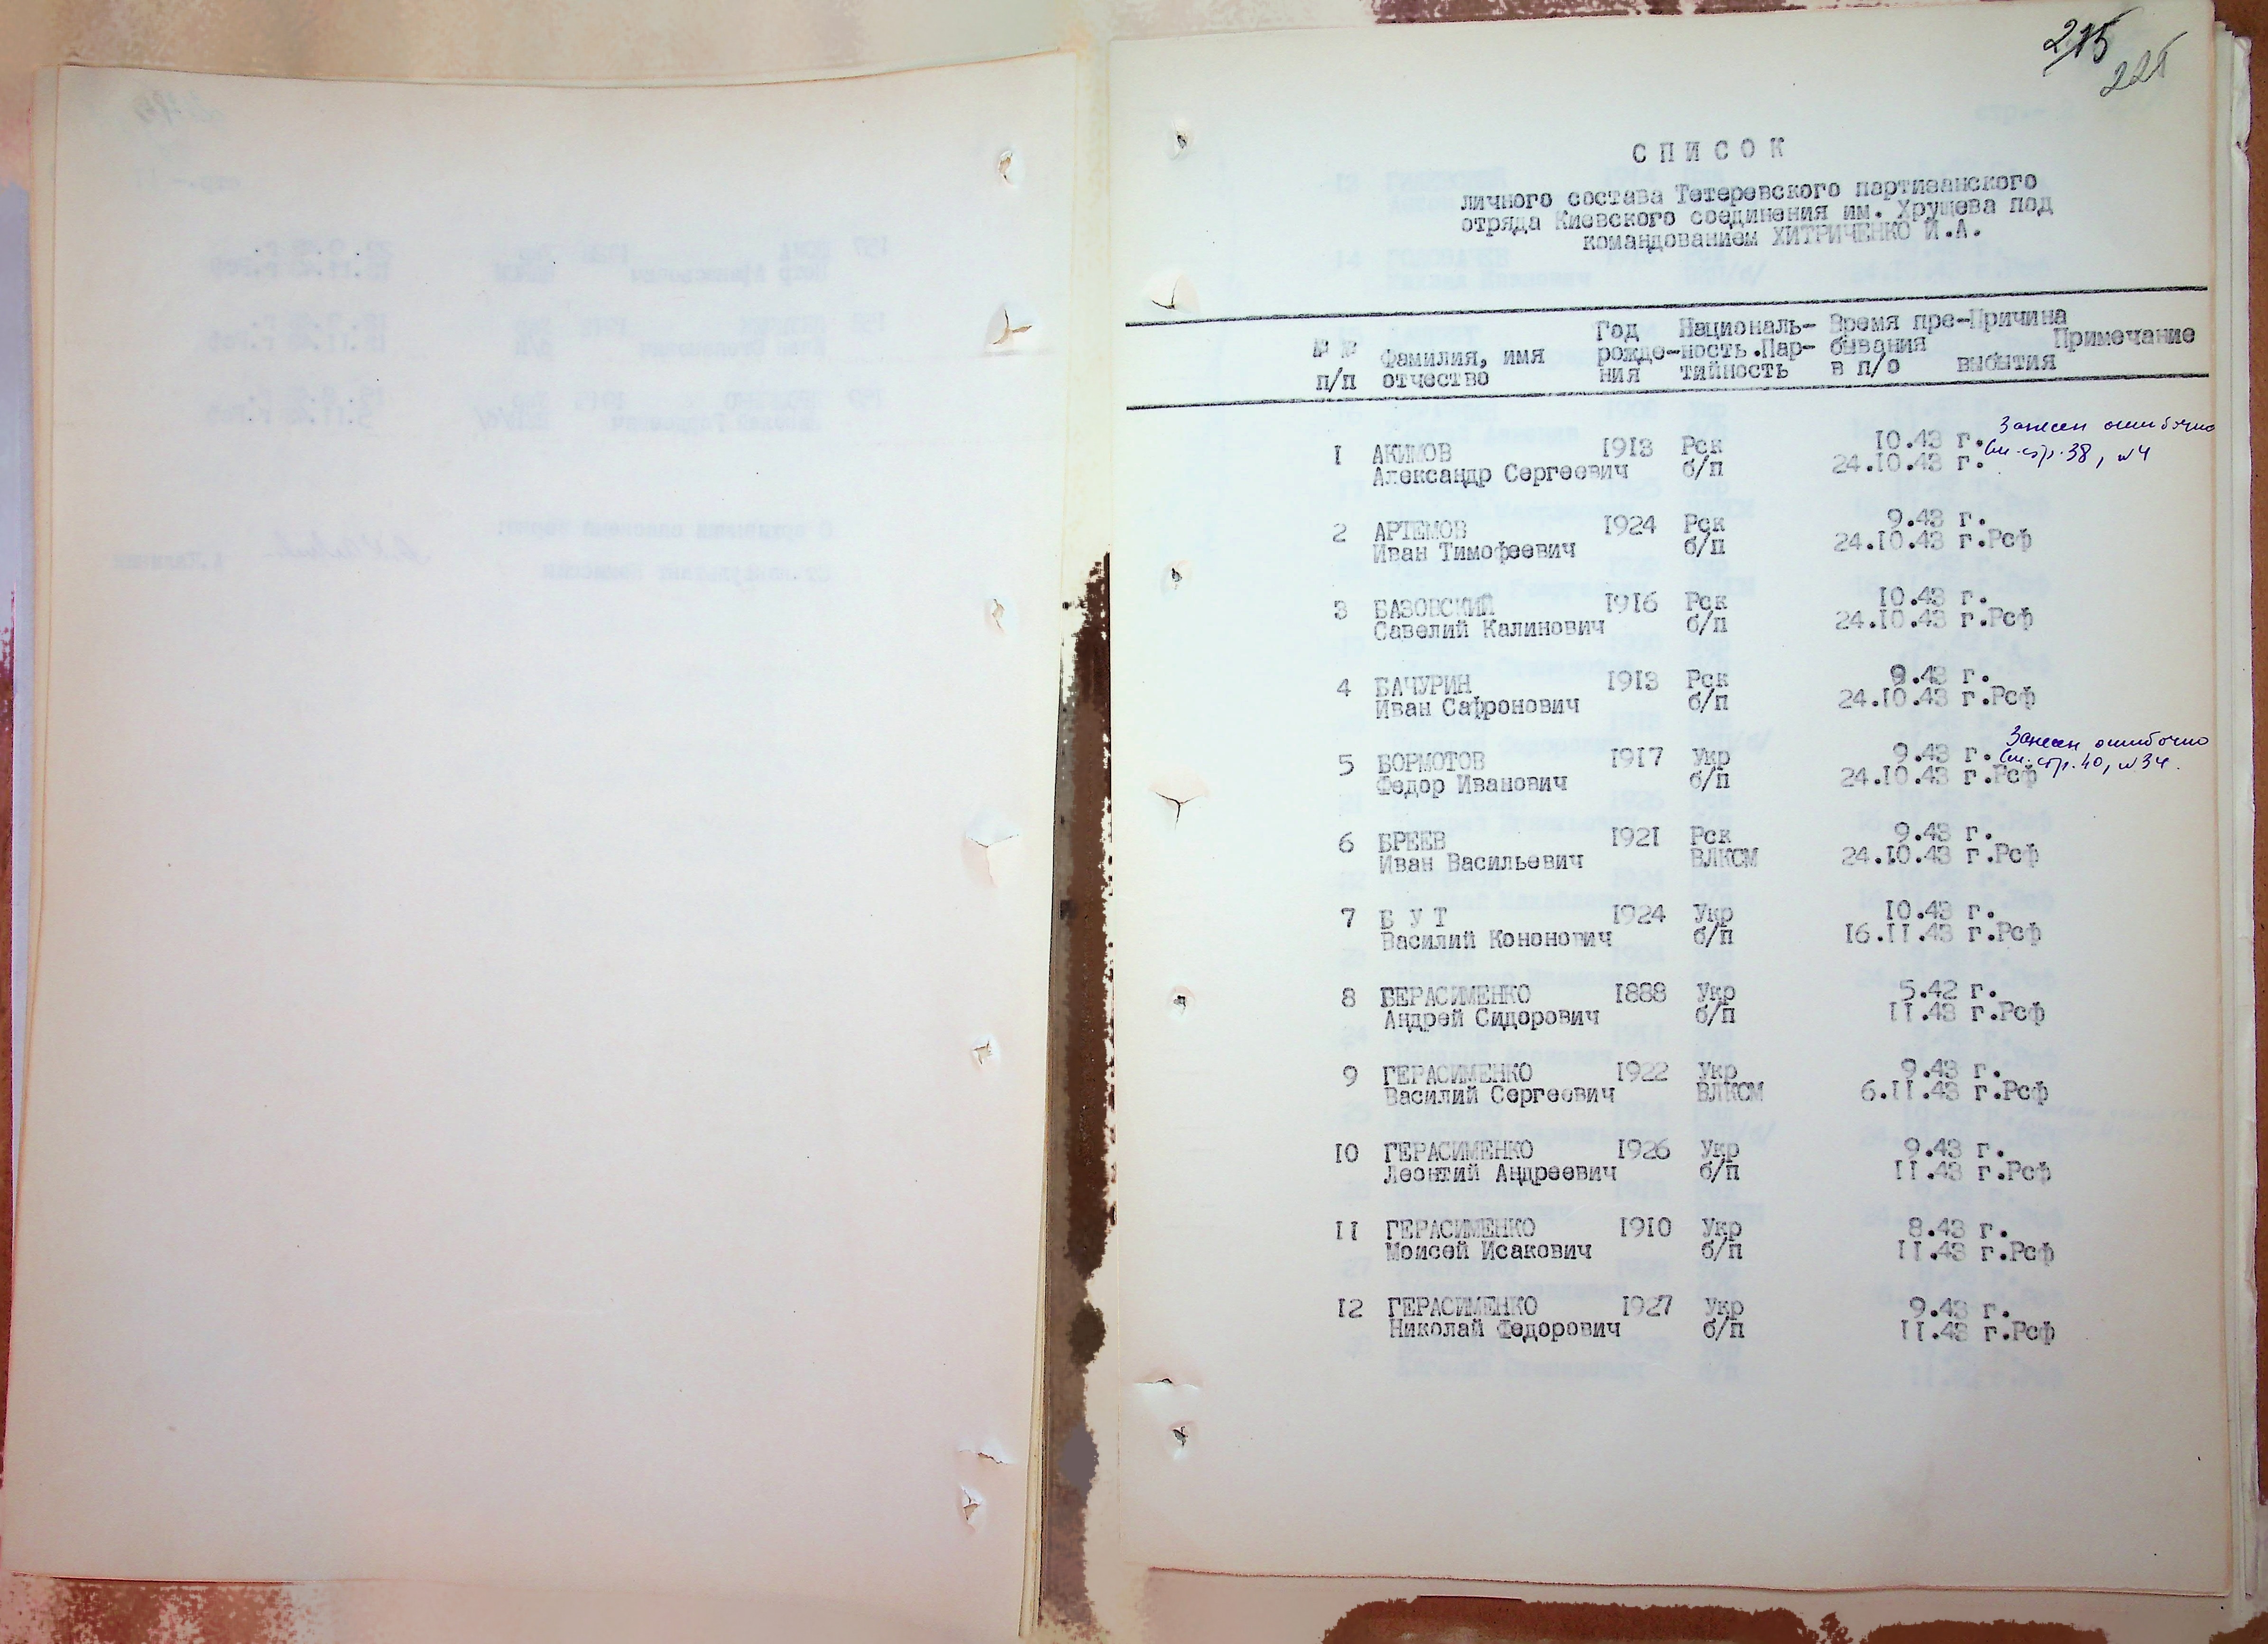 215
225
СПИСОК
личного состава Тетеревского партизанского
отряда Киевского соединения им. Хрущева под
командованием ХИТРИЧЕНКО И.А.
№ № п/п Фамилия, имя отчество Год рожде-ния Националь-ность.Пар-тийность Время пре-бывания в п/о Причина выбытия Примечание
1 АКИМОВ 1913 Рск 10.43 г. Занесен ошибочно
Александр Сергеевич б/п 24.10.43 г. см. стр. 38, №4
2 АРТЕМОВ 1924 Рск 9.43 г.
Иван Тимофеевич б/п 24.10.43 г.Рсф
3 БАЗОВСКИЙ 1916 Рск 10.43 г.
Савелий Калинович б/п 24.10.43 г.Рсф
4 БАЧУРИН 1913 Рск 9.43 г.
Иван Сафронович б/п 24.10.43 г.Рсф
5 БОРМОТОВ 1917 Укр 9.43 г. Занесен ошибочно
Федор Иванович б/п 24.10.43 г.Рсф см. стр. 40, №34.
6 БРЕЕВ 1921 Рск 9.43 г.
Иван Васильевич ВЛКСМ 24.10.43 г.Рсф
7 Б У Т 1924 Укр 10.43 г.
Василий Кононович б/п 16.11.43 г.Рсф
8 ГЕРАСИМЕНКО 1888 Укр 5.42 г.
Андрей Сидорович б/п 11.43 г.Рсф
9 ГЕРАСИМЕНКО 1922 Укр 9.43 г.
Василий Сергеевич ВЛКСМ 6.11.43 г.Рсф
10 ГЕРАСИМЕНКО 1926 Укр 9.43 г.
Леонтий Андреевич б/п 11.43 г.Рсф
11 ГЕРАСИМЕНКО 1910 Укр 8.43 г.
Моисей Исакович б/п 11.43 г.Рсф
12 ГЕРАСИМЕНКО 1927 Укр 9.43 г.
Николай Федорович б/п 11.43 г.Рсф